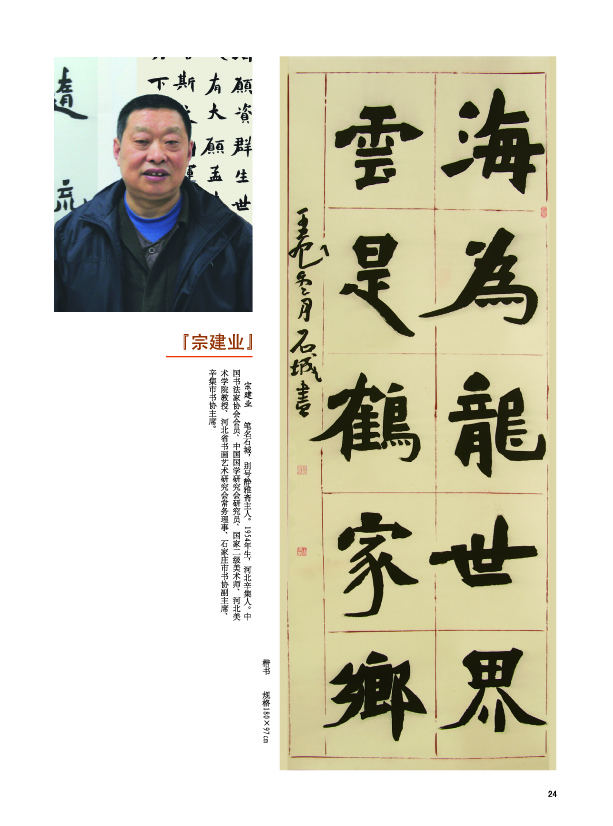 願資群生世
有大願孟
斯
下
流
『宗建业』
宗建业　笔名石城，别号静雅斋主人。1954年生，河北辛集人。中
国书法家协会会员，中国国学研究会研究员，国家二级美术师，河北美
术学院教授，河北省书画艺术研究会常务理事，石家庄市书协副主席，
辛集市书协主席。
楷书　规格180×97cm
海為龍世界
雲是鶴家鄉
壬辰冬月石城書
24